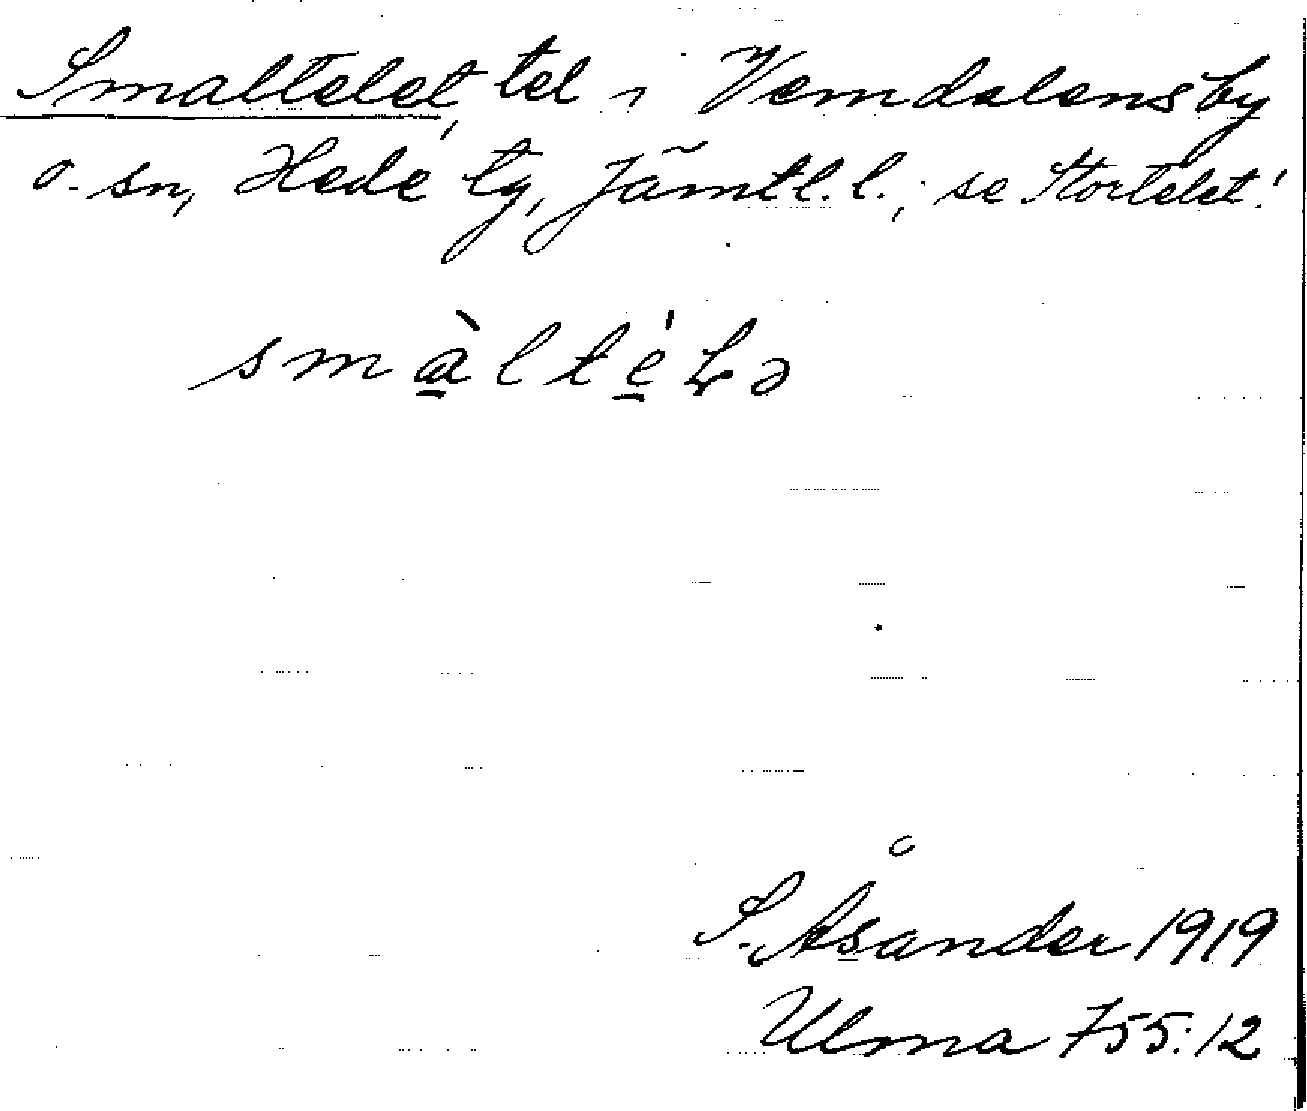 Smaltelet, tel i Vemdalens by
o. sn, Hede tg, Jämtl. l.; se Stortelet!
smàltéLə
S. Åsander 1919
Ulma 755:12